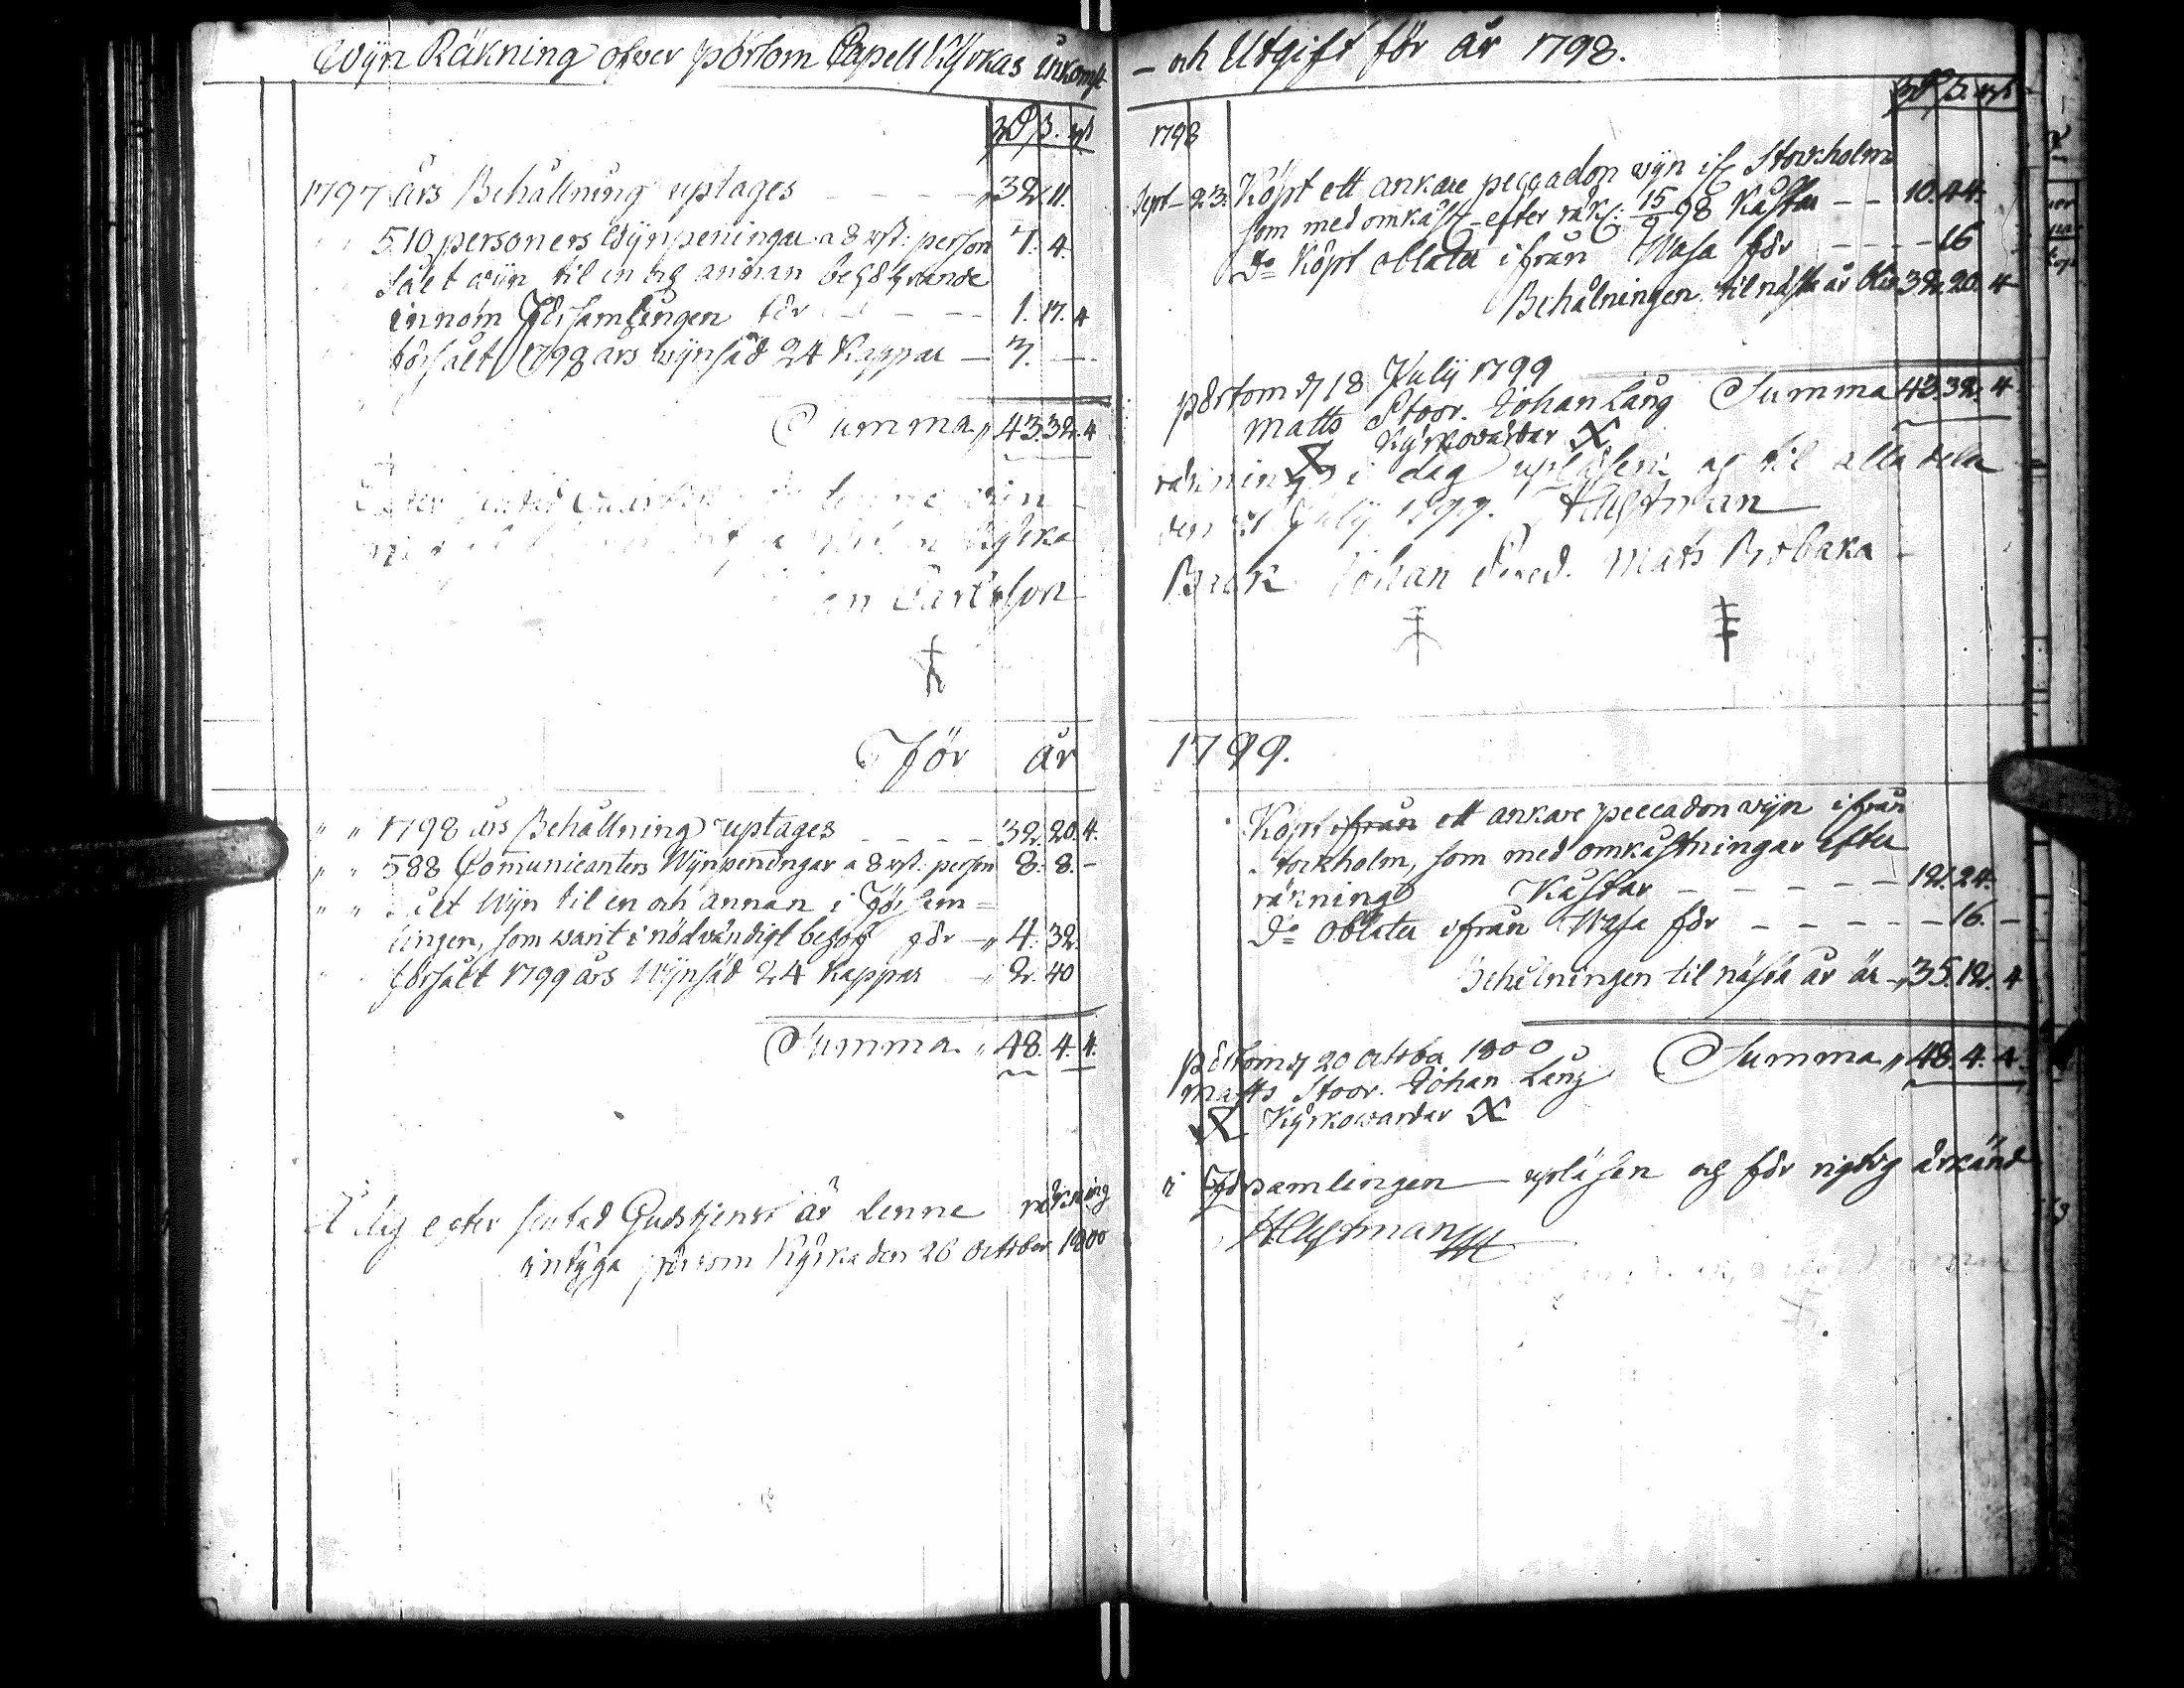 Wijn Räkning öfwer pörtom Capell Kÿrkas inkomst
Rd ß. rst
1797 års Behållning uptages - - - 32. 11.
510 personers Wijnpeningar a 8 rst: person 7. 4.
sålt wijn til en og annan behöfwande
innom Församlingen för - - - 1. 17. 4
försålt 1798 års wijnsäd 24 Kappar - 7. -
Summa 43. 32. 4
Efter
Kyrka
Carlsson
För år
" " 1798 års Behållning uptages - - - - 32. 20. 4.
" " 588 Comunicanters Wijnpeningar a 8 rst: person 8. 8. -
" " sålt Wijn til en och annan i Försam=
lingen, som warit i nödwändigt behof för - " 4. 32.
försålt 1799 års Wijnsäd 24 Kappar - " 2. 40
Summa " 48. 4. 4.
I dag efter slutad Gudstjenst är denne räkning
intyga pörtom Kÿrka den 26 October 1800
- och Utgift för år 1798.
Rd ß. rst
1798
Sept - 23. Köpt ett ankare peccadon wijn if Stockholm
som med omkåst efter räk: 15/9 98 Kåstar - - 10. 44.
Do Köpt oblater ifrån Wasa för - - - - 16
Behålningen til nästa år blir 32. 20. 4
pörtom d 18 Julÿ 1799
Summa 43. 32. 4
Matts Stoor. Johan Lång
Kÿrkowärdar
räkning i dag upläsen og til alla dela
den 21 Julÿ 1799. HAstman
Back Johan Sved. Mats Brobaka
1799.
Köpt ifrån ett ankare peccadon wijn ifrån
Stockholm, som med omkåstningar efter
räkning Kåstar - - - - - 12. 24.
Do oblater ifrån Wasa för - - - - - 16. -
Behålningen til nästa år är - " 35. 12. 4
pörtom d 20 octobr 1800
Summa " 48. 4. 4.
Matts Stoor. Johan Lång
Kÿrkowärdar
i Församlingen upläsen og för rigtig ärkänd
HAstman